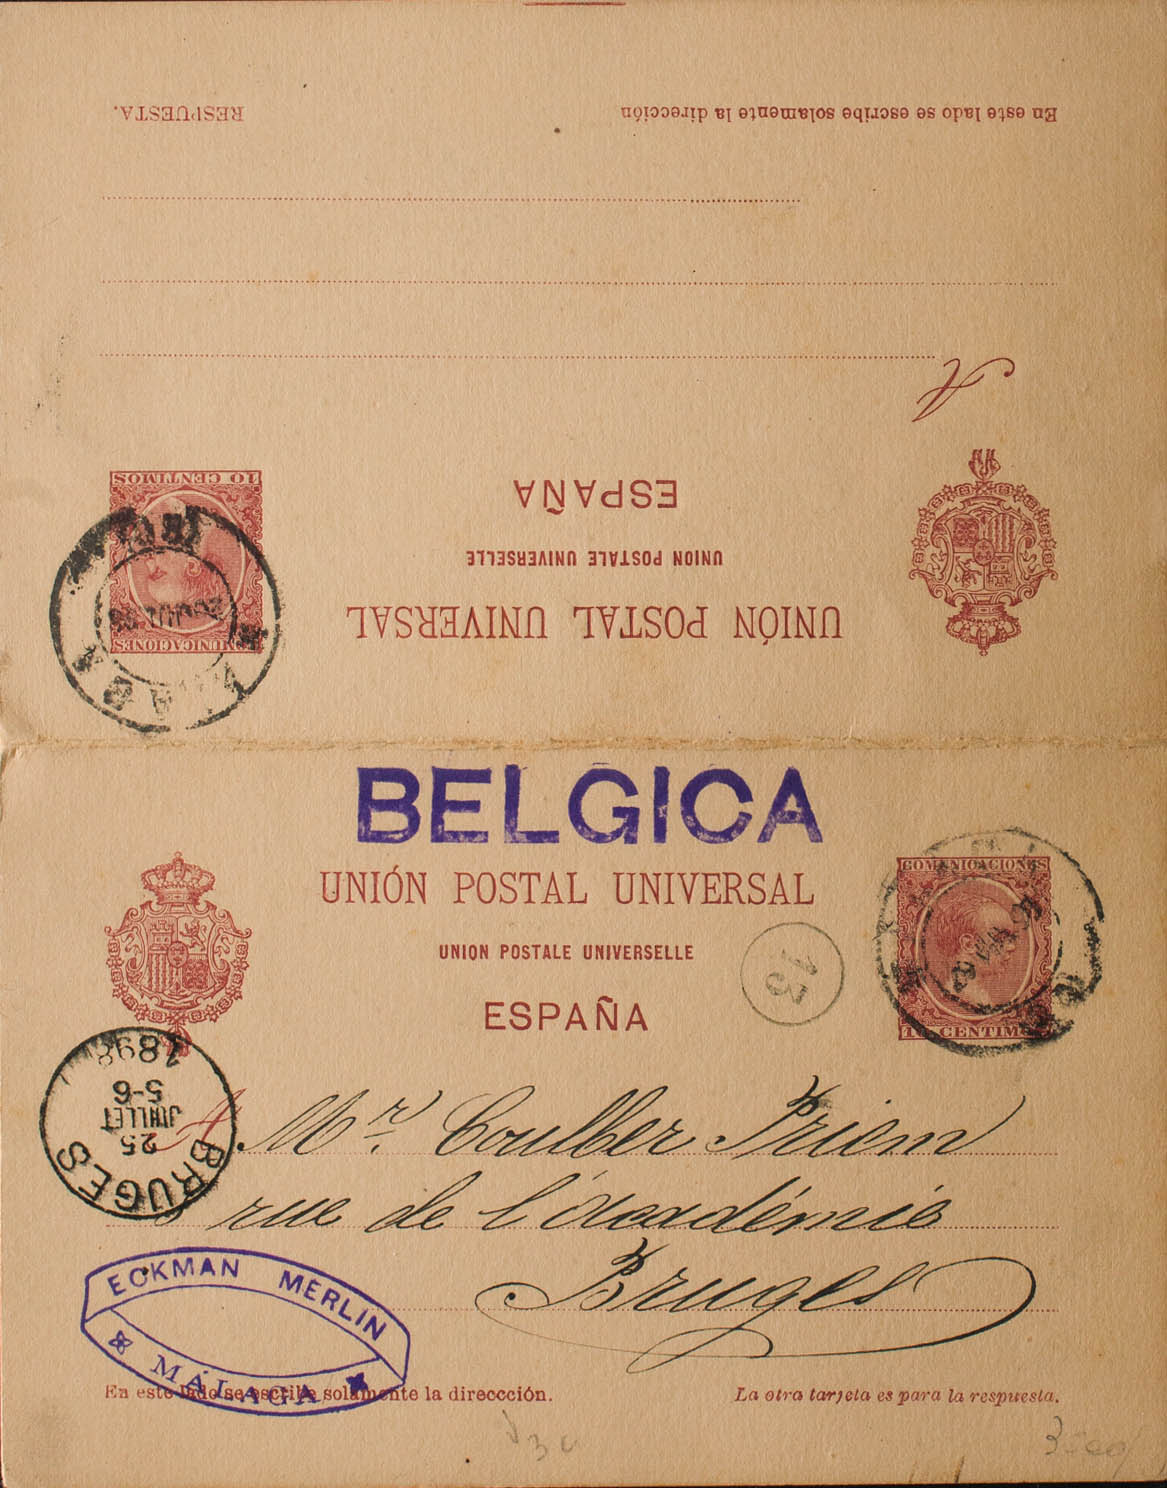 RESPUESTA.
En este lado se escribe solamente la dirección
A
10 CENTIMOS
COMUNICACIONES
ESPAÑA
UNION POSTALE UNIVERSELLE
UNIÓN POSTAL UNIVERSAL
BELGICA
UNIÓN POSTAL UNIVERSAL
UNION POSTALE UNIVERSELLE
ESPAÑA
COMUNICACIONES
10 CENTIMOS
13
BRUGES
25
JUILLET
5-6
1898
A Mr. Coulber Priem
rue de l'académie
Bruges
ECKMAN MERLIN
MÁLAGA
En este lado se escribe solamente la direccción.
La otra tarjeta es para la respuesta.